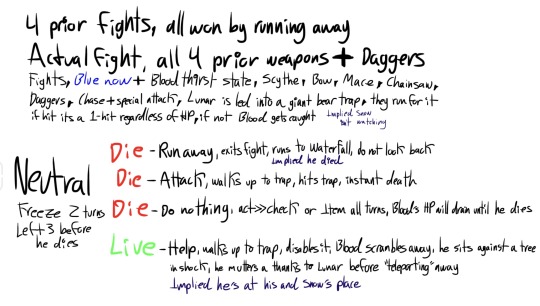 4 prior fights, all won by running away
Actual fight, all 4 prior weapons + Daggers
Fights, Blue now + Blood thirst state, Scythe, Bow, Mace, Chainsaw,
Daggers, Chase + special attack, Lunar is led into a giant bear trap, they run for it
if hit its a 1-hit regardless of HP, if not Blood gets caught Implied Snow
isnt watching
Die - Run away, exits fight, runs to waterfall, do not look back
Implied he died
Die - Attack, walks up to trap, hits trap, instant death
Die - Do nothing, act>>check or Item all turns, Blood's HP will drain until he dies
Live - Help, walks up to trap, disables it, Blood scrambles away, he sits against a tree
in shock, he mutters a thanks to Lunar before "teleporting" away
Implied he's at his and Snow's place
Neutral
Freeze 2 turns
Left 3 before
he dies